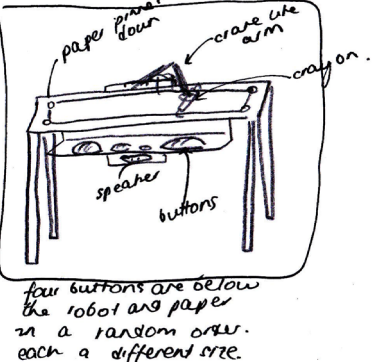 paper pinned
down
crane like
arm
crayon.
speaker
buttons
four buttons are below
the robot and paper
in a random order.
each a different size.